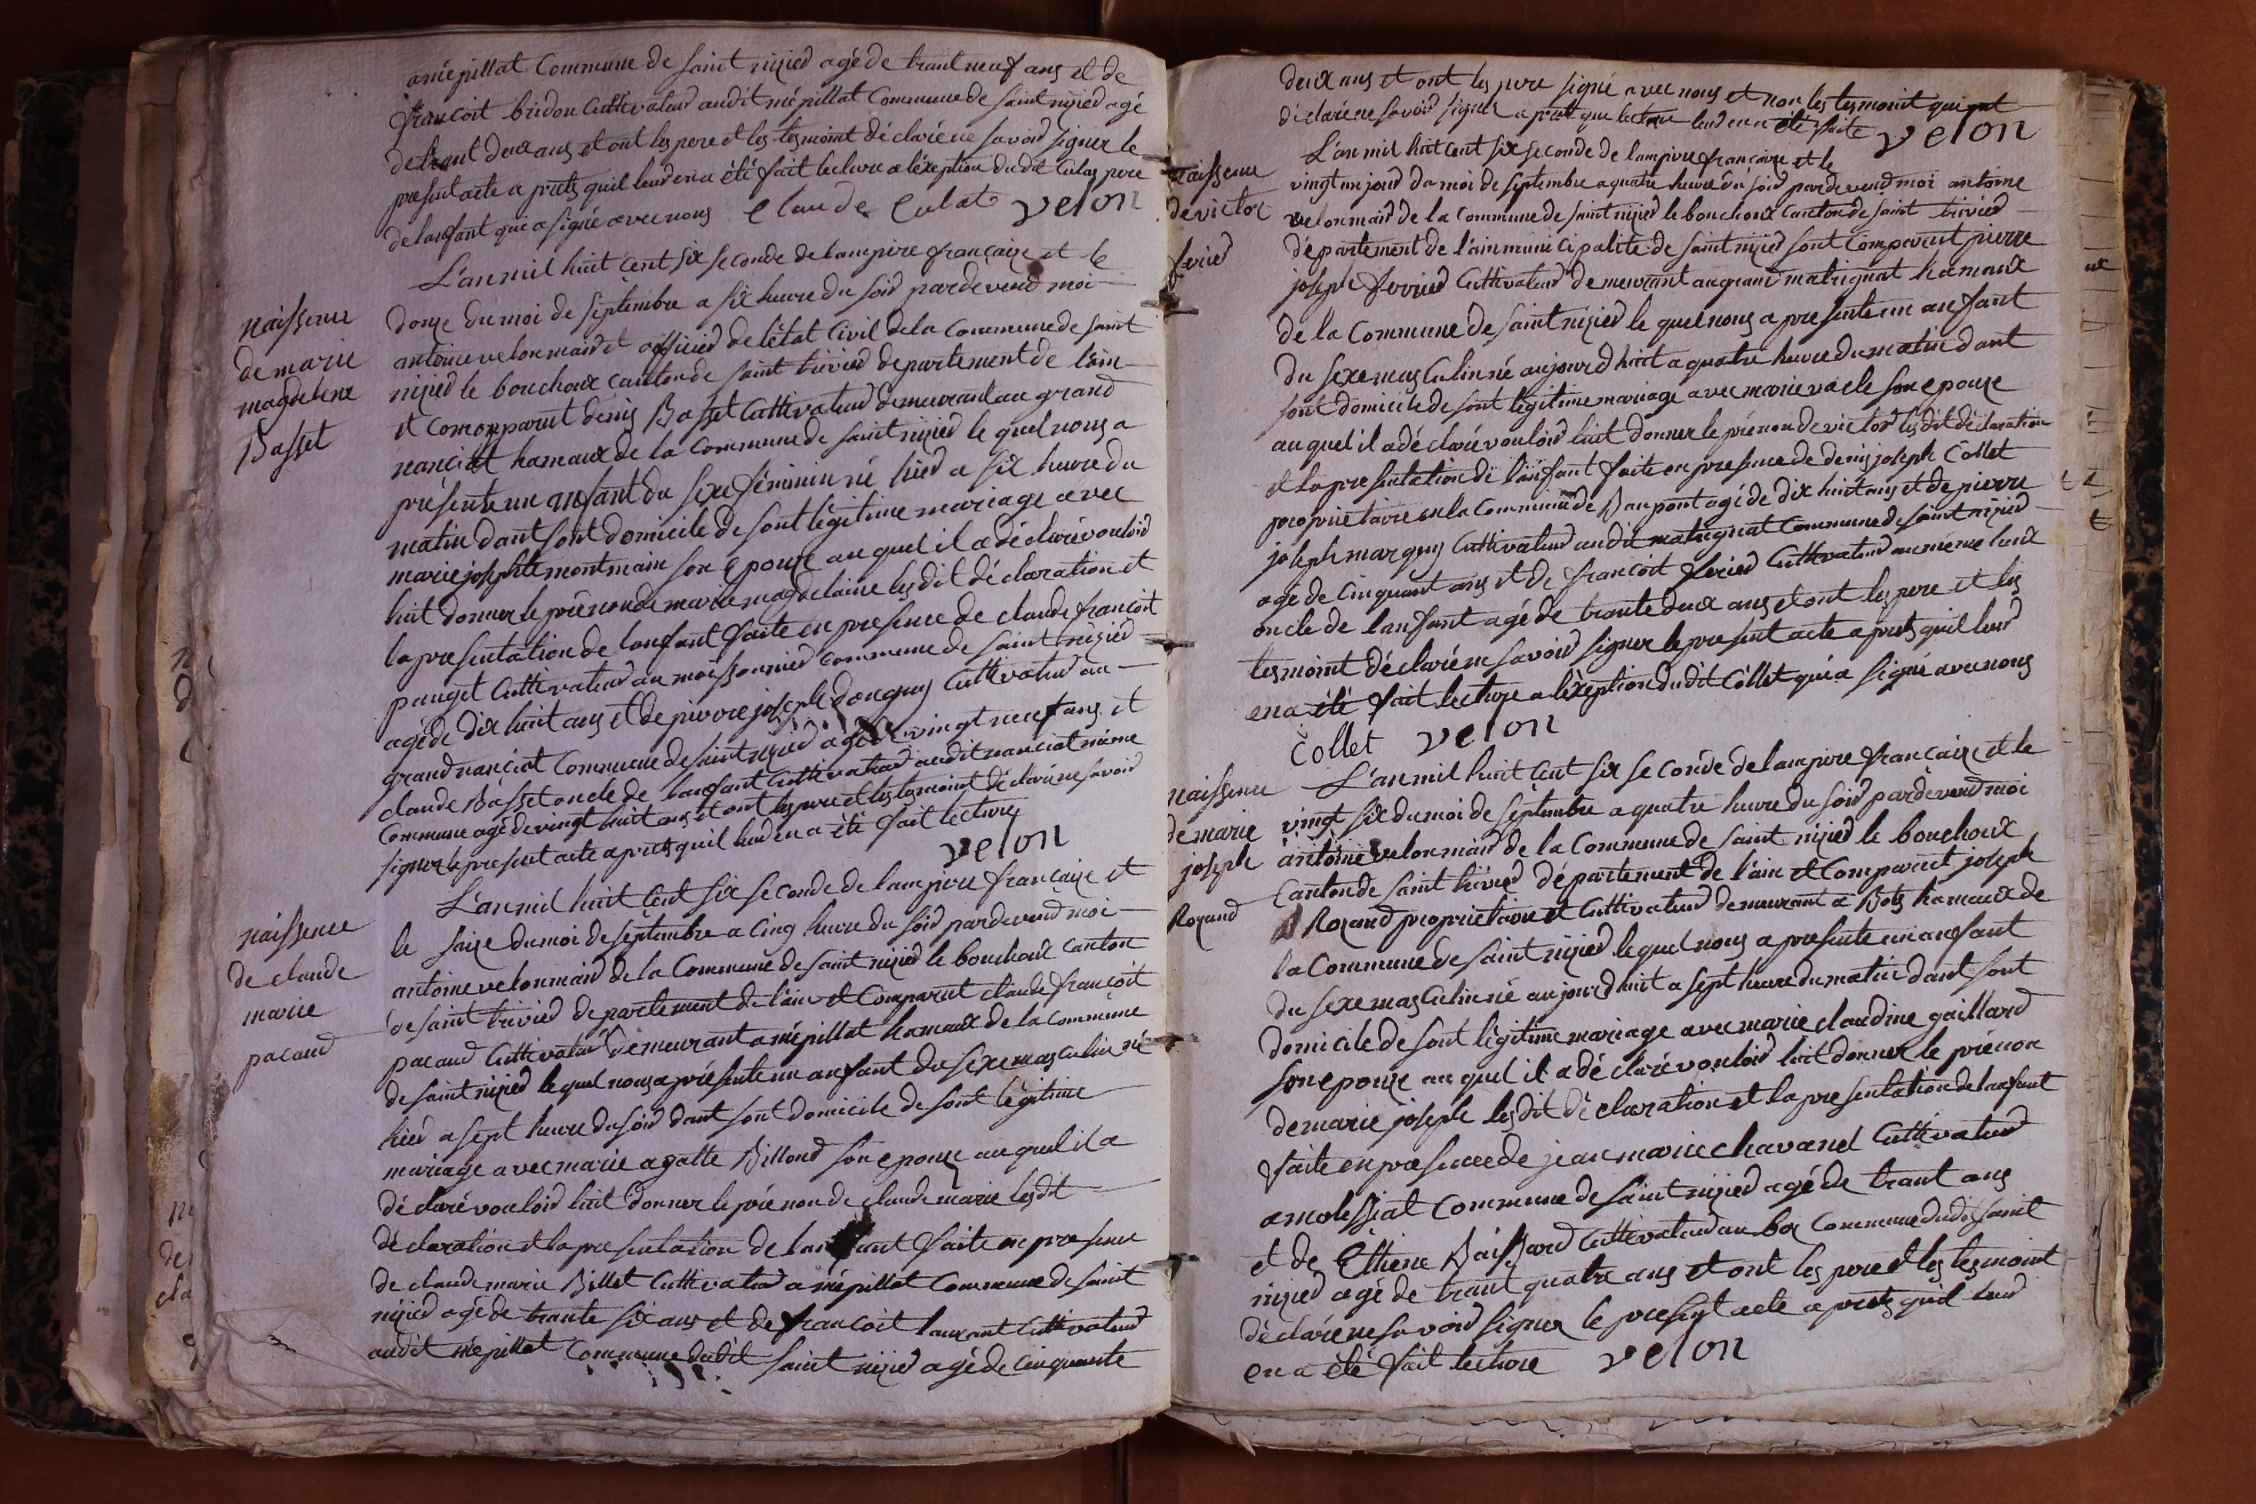 a mépillat Commune de saint nizied agé de trant neuf ans et de
francoit bridon Cultivateur audit mépillat Commune de saint nizied agé
de trant deux ans et ont les pere et les tesmoint déclaré ne savoir signer le
present acte a prets quil leur en a été fait lecture a l'éxeption dudit Culat pere
de lanfant qui a signé avec nous Claude Culat velon
L'an mil huit Cent six seconde de lampire française et le
naissence
de marie
magdelene
Basset
donze du moi de septembre a six heure du soir pardevend moi
antoine velon maird et officier de l'état Civil de la Commune de saint
nizied le bouchoux canton de saint trivied departement de l'ain
et Comonparut denis Basset Cultivateur demeurant au grand
nanciat hameaux de la Commune de saint nizied le quel nous a
présente un anfant du sexe féminin né hier a six heure du
matin dant sont domicile de sont légitime mariage avec
marie josephte montmain son epouze au quel il a déclaré vouloir
luit donner le prénon de marie magdelaine lesdit déclaration et
la presentation de lanfant faite en presence de claude francoit
pauget Cultivateur au moissonnier Commune de saint nizied
agé de dix huit ans et de pierre joseph donguy Cultivateur au
grand nanciat Commune de saint nizied agé de vingt neuf ans et
claude Basset oncle de lanfant Cultivateur audit nanciat même
Commune agé de vingt huit ans et ont les pere et les tesmoint déclaré ne savoir
signer le present acte a prets quil leur en a été fait lecture
velon
L'an mil huit Cent six seconde de lampire française et
naissence
de claude
marie
pacaud
le saize du moi de septembre a Cinq heure du soir pardevend moi
antoine velon maird de la Commune de saint nizied le bouchoux canton
de saint trivied departement de l'ain et Comparut claude francoit
pacaud Cultivateur demeurant a mépillat hameaux de la Commune
de saint nizied le quel nous a présente un anfant du sexe masculin né
hier a sept heure du soir dant sont domicile de sont légitime
mariage avec marie agatte Billoud son epouze au quel il a
déclaré vouloir luit donner le prénon de claude marie lesdit
déclaration et la presentation de lanfant faite en presence
de claude marie Billet Cultivateur a mépillat Commune de saint
nizied agé de trante six ans et de francoit laurant Cultivateur
audit mépillat Commune dudit saint nizied agé de Cinquante
deux ans et ont les pere signé avec nous et non les tesmoint qui ont
déclaré ne savoir signer a prets que lecture leur en a été faite velon
naissence
de victor
ferier
L'an mil huit Cent six seconde de lampire française et le
vingt un jour du moi de septembre a quatre heure du soir pardevend moi antoine
velon maird de la Commune de saint nizied le bouchoux Canton de saint trivied
département de l'ain municipalité de saint nizied sont Comparut pierre
joseph ferrier Cultivateur demeurant au grand matrignat hameaux
de la Commune de saint nizied le quel nous a presente un anfant
du sexe masculin né aujourd huit a quatre heure du matin dant
sont domicile de sont légitime mariage avec marie vacle son epouze
au quel il a déclaré vouloir luit donner le prénon de victor lesdit déclaration
et la presentation de lanfant faite en presence de denis joseph Collet
proprietaire en la Commune de Baupont agé de dix huit ans et de pierre
joseph marguy Cultivateur audit matrignat Commune de saint nizied
agé de Cinquant ans et de francoit ferier Cultivateur au même lieux
oncle de lanfant agé de trante deux ans et ont les pere et les
tesmoint déclaré ne savoir signer le present acte a prets quil leur
en a été fait lecture a l'éxeption dudit Collet qui a signé avec nous
Collet velon
naissence
de marie
joseph
Rozand
L'an mil huit Cent six seconde de lampire française et le
vingt six du moi de septembre a quatre heure du soir pardevend moi
antoine velon maird de la Commune de saint nizied le bouchoux
Canton de saint trivied département de l'ain et Comparut joseph
Rozand proprietaire et Cultivateur demeurant a Bots hameaux de
la Commune de saint nizied le quel nous a presente un anfant
du sexe masculin né aujourd huit a sept heure du matin dant sont
domicile de sont légitime mariage avec marie claudine gaillard
son epouze au quel il a déclaré vouloir luit donner le prénon
de marie joseph lesdit déclaration et la presentation de lanfant
faite en presence de jean marie chavanel Cultivateur
a molissiat Commune de saint nizied agé de trant ans
et de Ettiene Baissard Cultivateur au box Commune dudit saint
nizied agé de trant quatre ans et ont les pere et les tesmoint
déclaré ne savoir signer le present acte a prets quil leur
en a été fait lecture velon